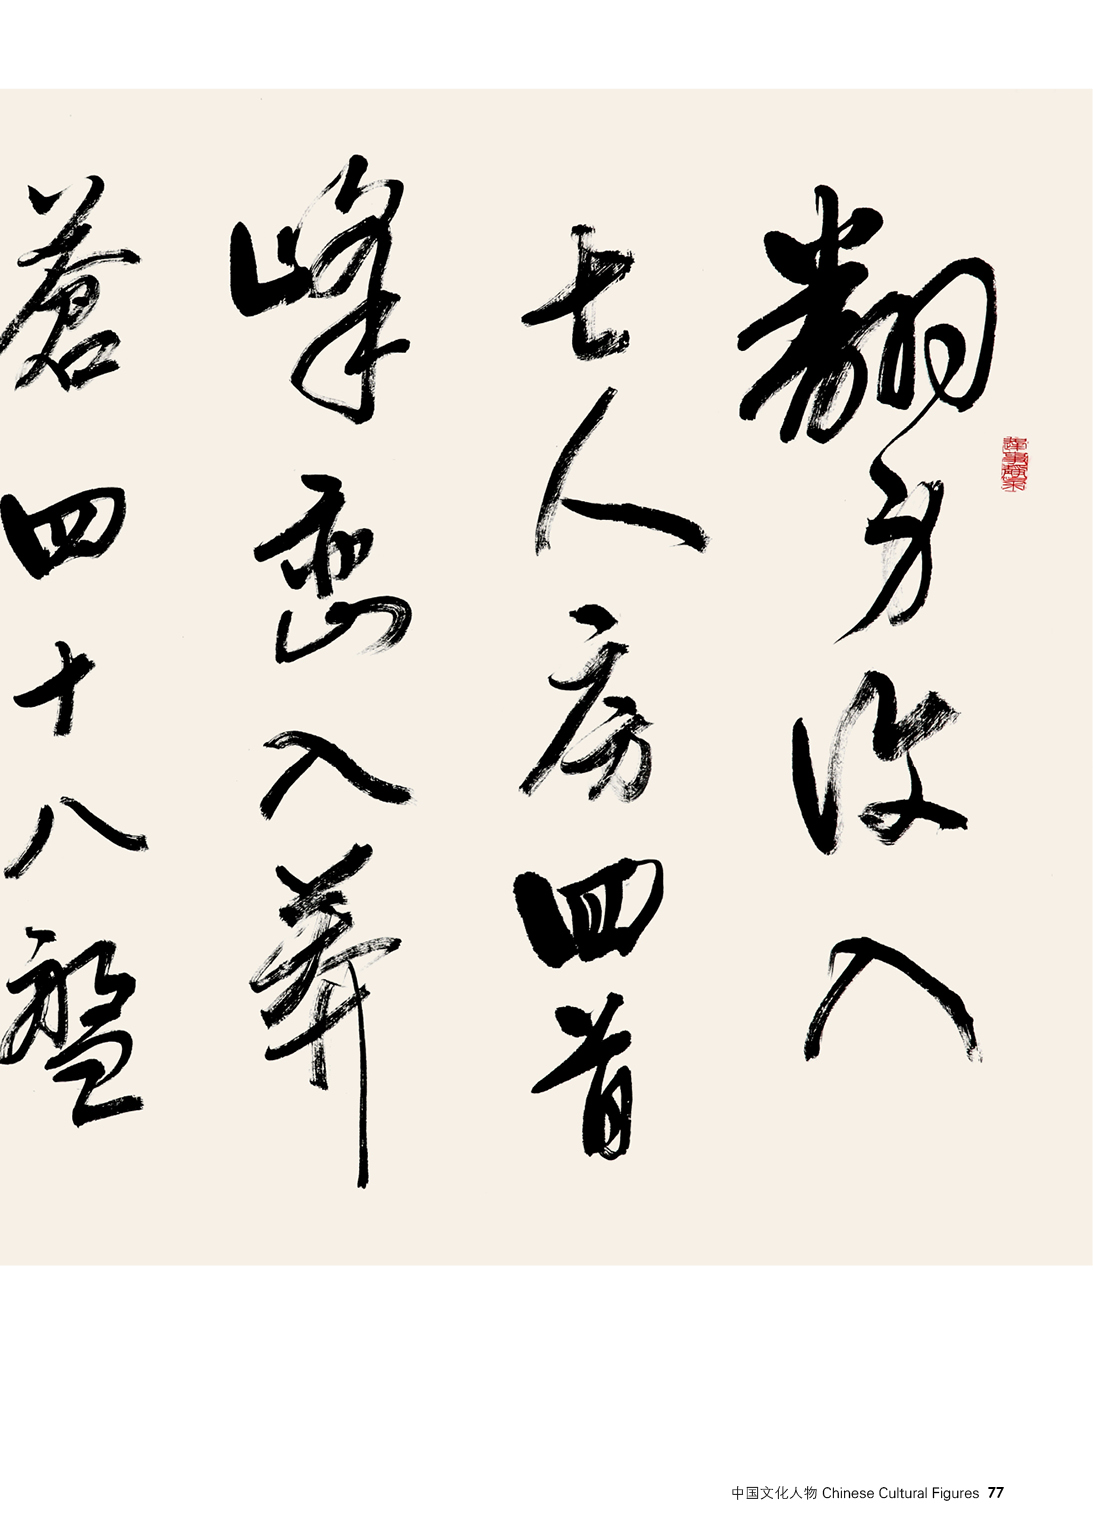 翻身復入
七人房回首
峰峦入莽
蒼四十八盤
中国文化人物 Chinese Cultural Figures 77